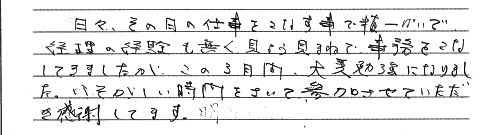 日々、その日の仕事をこなす事で精一ぱいで
経理の経験も無く見よう見まねで、事務をこな
してきましたが、この3月間、大変勉強になりまし
た。いそがしい時間をさいて参加させていただ
き感謝してます。